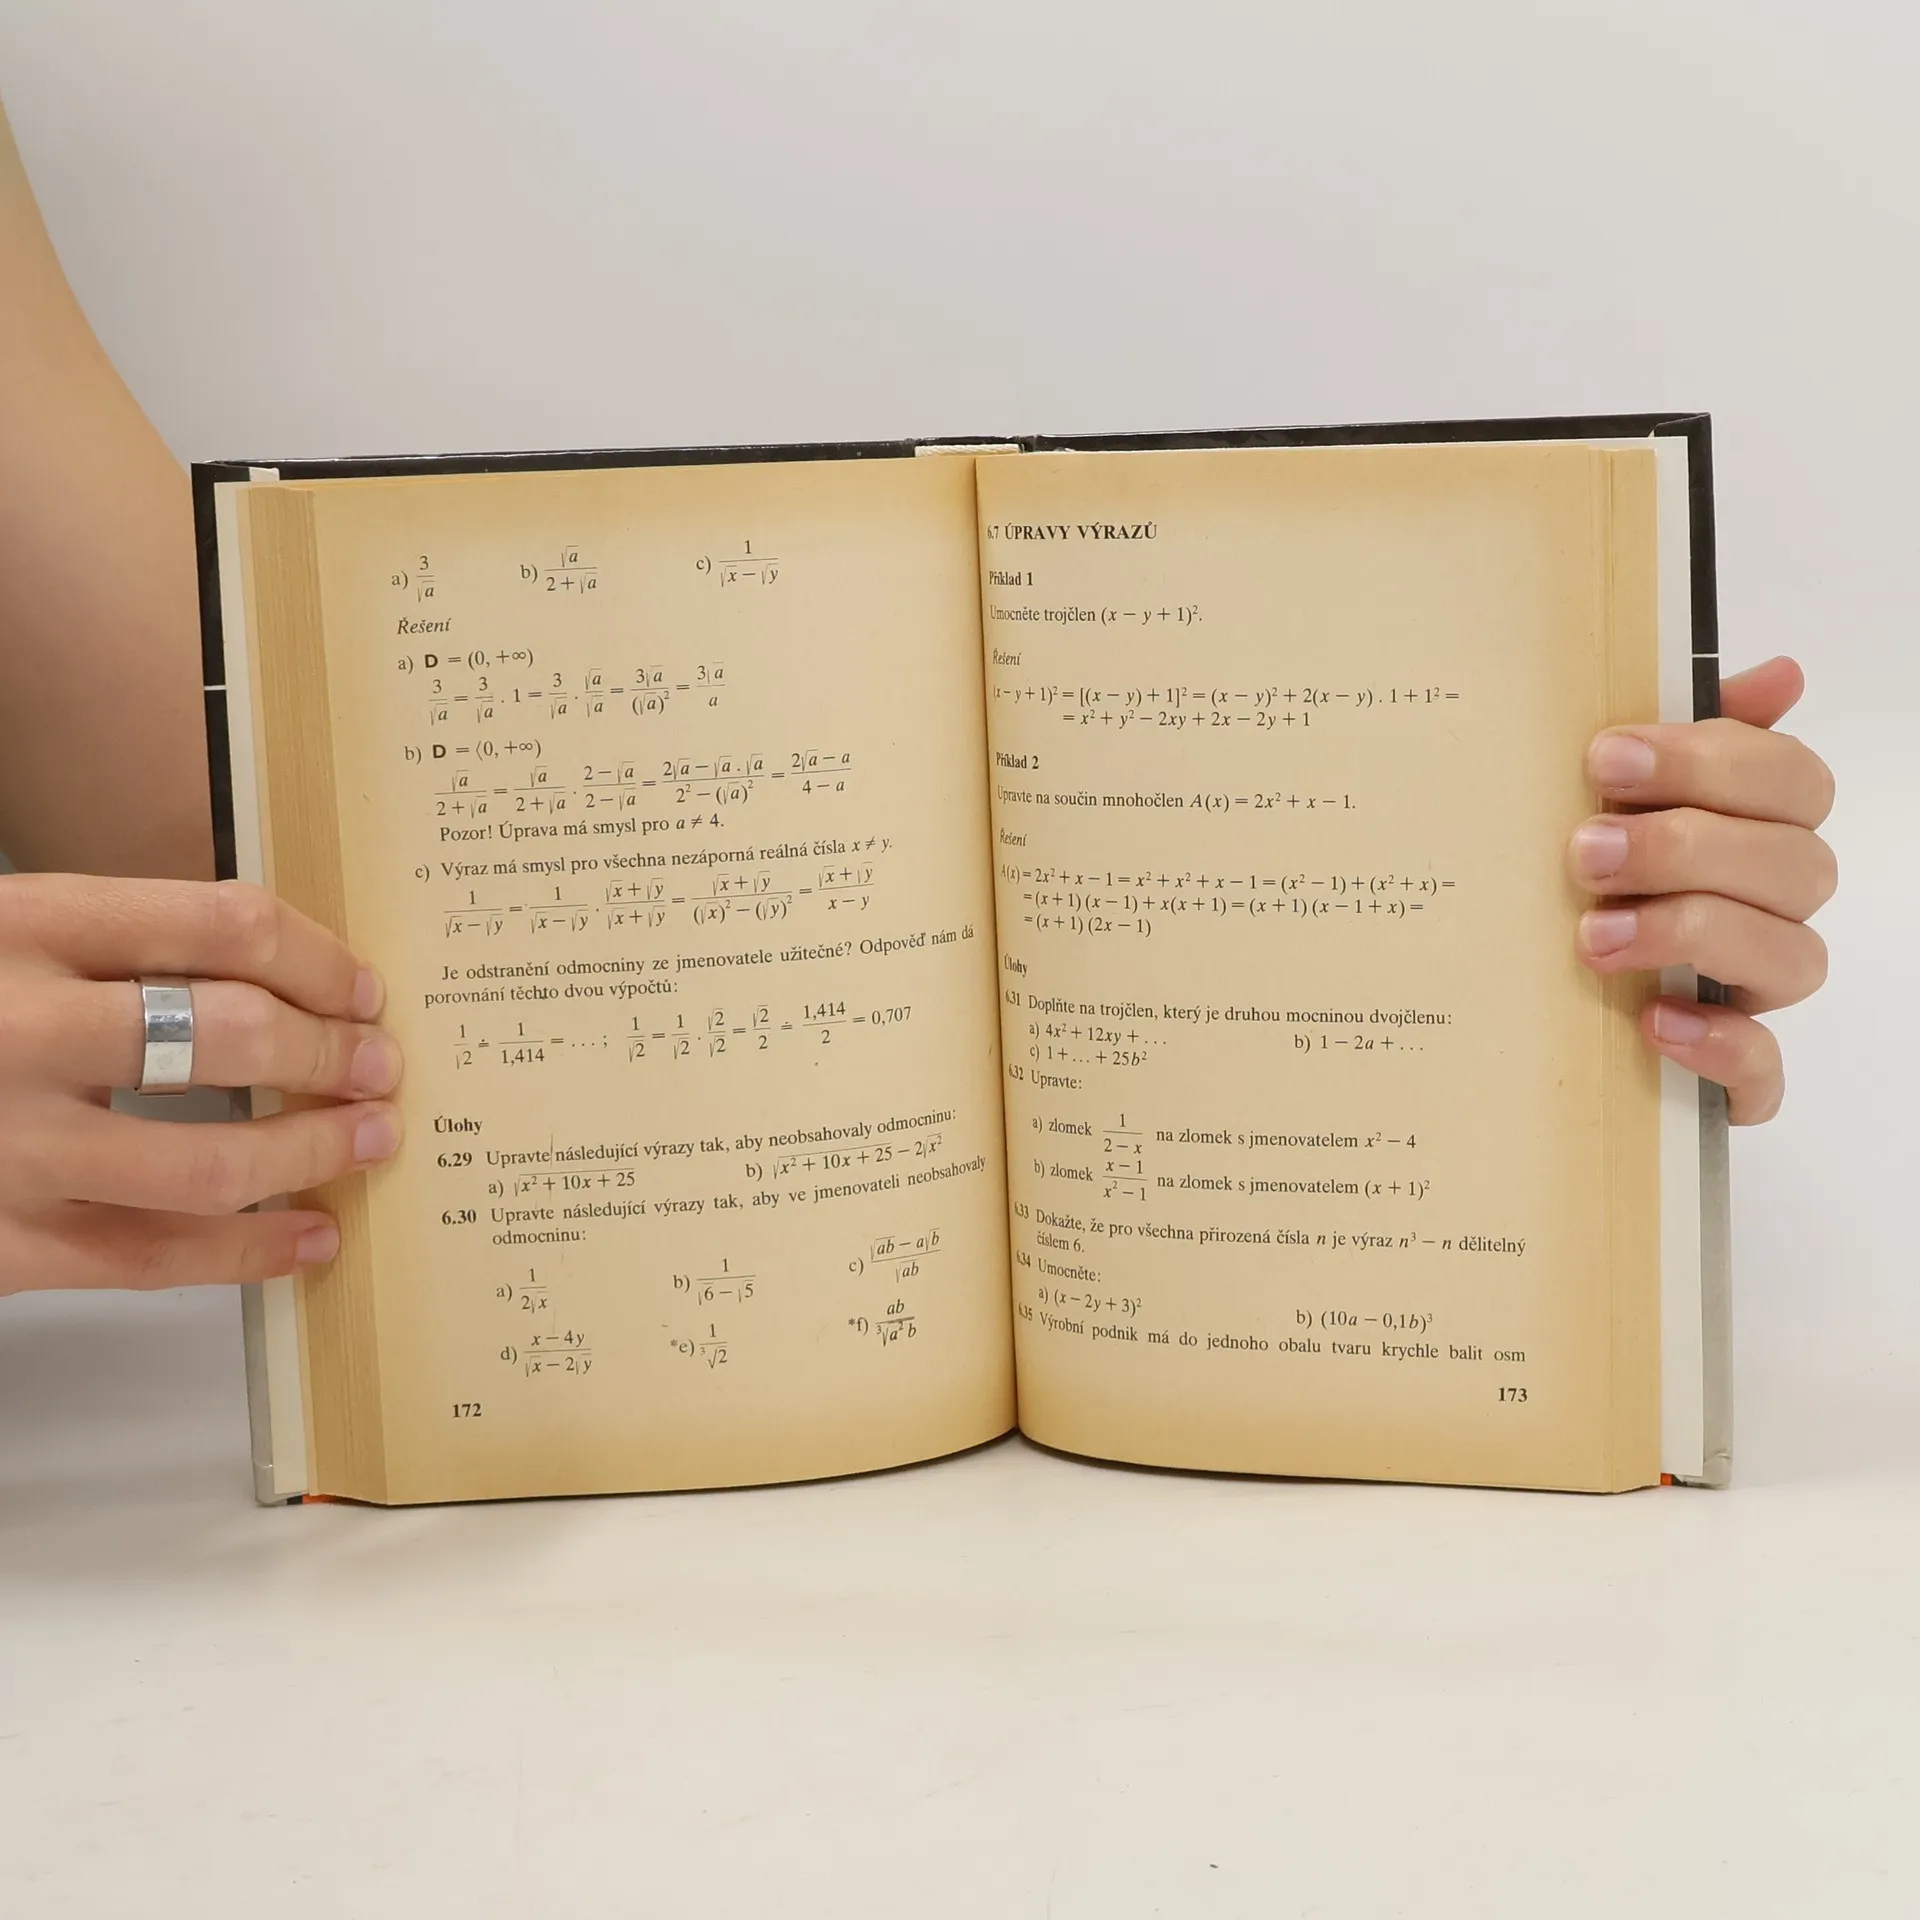 a) 3/√a b) √a/(2 + √a) c) 1/(√x − √y)
Řešení
a) D = (0, +∞)
3/√a = 3/√a . 1 = 3/√a . √a/√a = 3√a/(√a)² = 3√a/a
b) D = ⟨0, +∞)
√a/(2 + √a) = √a/(2 + √a) . (2 − √a)/(2 − √a) = (2√a − √a . √a)/(2² − (√a)²) = (2√a − a)/(4 − a)
Pozor! Úprava má smysl pro a ≠ 4.
c) Výraz má smysl pro všechna nezáporná reálná čísla x ≠ y.
1/(√x − √y) = 1/(√x − √y) . (√x + √y)/(√x + √y) = (√x + √y)/((√x)² − (√y)²) = (√x + √y)/(x − y)
Je odstranění odmocniny ze jmenovatele užitečné? Odpověď nám dá
porovnání těchto dvou výpočtů:
1/√2 ≐ 1/1,414 = ... ; 1/√2 = 1/√2 . √2/√2 = √2/2 ≐ 1,414/2 = 0,707
Úlohy
6.29 Upravte následující výrazy tak, aby neobsahovaly odmocninu:
a) √(x² + 10x + 25) b) √(x² + 10x + 25) − 2√x²
6.30 Upravte následující výrazy tak, aby ve jmenovateli neobsahovaly
odmocninu:
a) 1/(2√x) b) 1/(√6 − √5) c) (√ab − a√b)/√ab
d) (x − 4y)/(√x − 2√y) *e) 1/³√2 *f) ab/³√(a²b)
172
6.7 ÚPRAVY VÝRAZŮ
Příklad 1
Umocněte trojčlen (x − y + 1)².
Řešení
(x − y + 1)² = [(x − y) + 1]² = (x − y)² + 2(x − y) . 1 + 1² =
= x² + y² − 2xy + 2x − 2y + 1
Příklad 2
Upravte na součin mnohočlen A(x) = 2x² + x − 1.
Řešení
A(x) = 2x² + x − 1 = x² + x² + x − 1 = (x² − 1) + (x² + x) =
= (x + 1) (x − 1) + x(x + 1) = (x + 1) (x − 1 + x) =
= (x + 1) (2x − 1)
Úlohy
6.31 Doplňte na trojčlen, který je druhou mocninou dvojčlenu:
a) 4x² + 12xy + ... b) 1 − 2a + ...
c) 1 + ... + 25b²
6.32 Upravte:
a) zlomek 1/(2 − x) na zlomek s jmenovatelem x² − 4
b) zlomek (x − 1)/(x² − 1) na zlomek s jmenovatelem (x + 1)²
6.33 Dokažte, že pro všechna přirozená čísla n je výraz n³ − n dělitelný
číslem 6.
6.34 Umocněte:
a) (x − 2y + 3)² b) (10a − 0,1b)³
6.35 Výrobní podnik má do jednoho obalu tvaru krychle balit osm
173